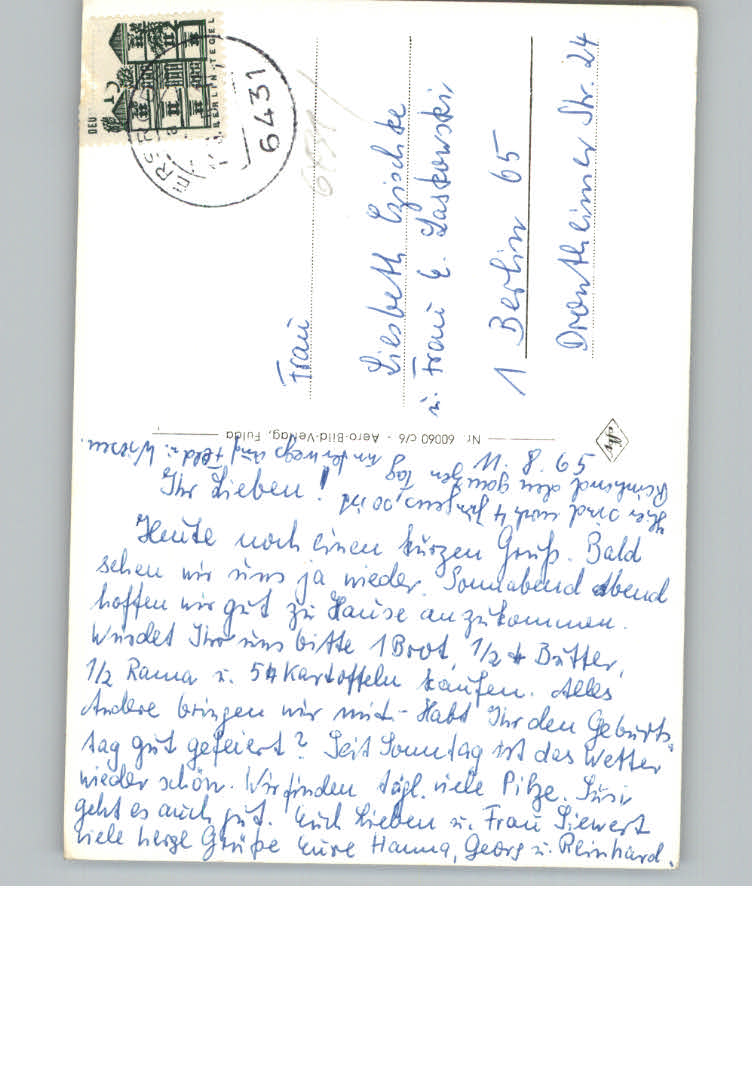 11. 8. 65
Ihr Lieben!
Heute noch einen kurzen Gruß. Bald
sehen wir uns ja wieder. Sonnabend Abend
hoffen wir gut zu Hause anzukommen.
Würdet Ihr uns bitte 1 Brot, 1/2 Butter,
1/2 Rama u. 5 Kartoffeln kaufen. Alles
Andere bringen wir mit. - Habt Ihr den Geburts-
tag gut gefeiert? Seit Sonntag ist das Wetter
wieder schön. Wir finden tägl. viele Pilze. Susi
geht es auch gut. Euch Lieben u. Frau Siewert
viele herzl Grüße Eure Hanna, Georg u. Reinhard.
Hier sind noch 4 Jungens, so ist
Reinhard den ganzen Tag
unterwegs auf Feld u. Wiesen.
Nr. 60060 c/6 - Aero-Bild-Verlag, Fulda
Frau
Liesbeth Czischke
u. Frau E. Laskowski
1 Berlin 65
Drontheimer Str. 24
6431
6431
DEU
BERLIN-TEGEL